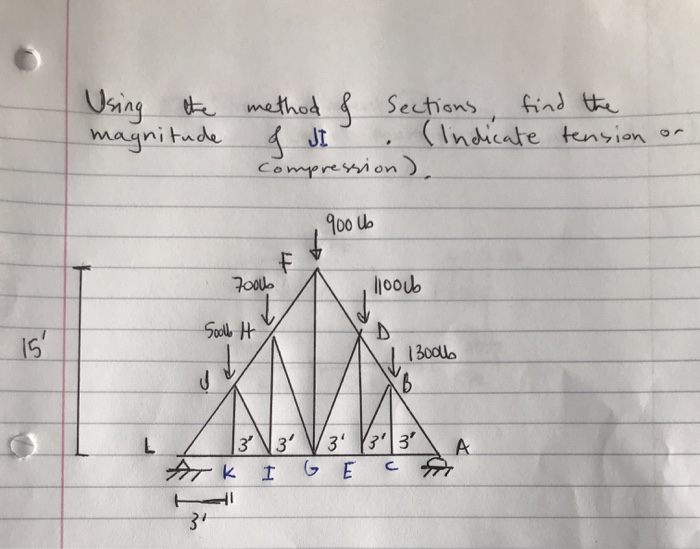 Using the method of Sections, find the
magnitude of JI. (Indicate tension or
compression).
900 lb
F
700lb
1100lb
500lb H
D
15'
1300lb
J
B
L
3' 3' 3' 3' 3'
A
K I G E C
3'